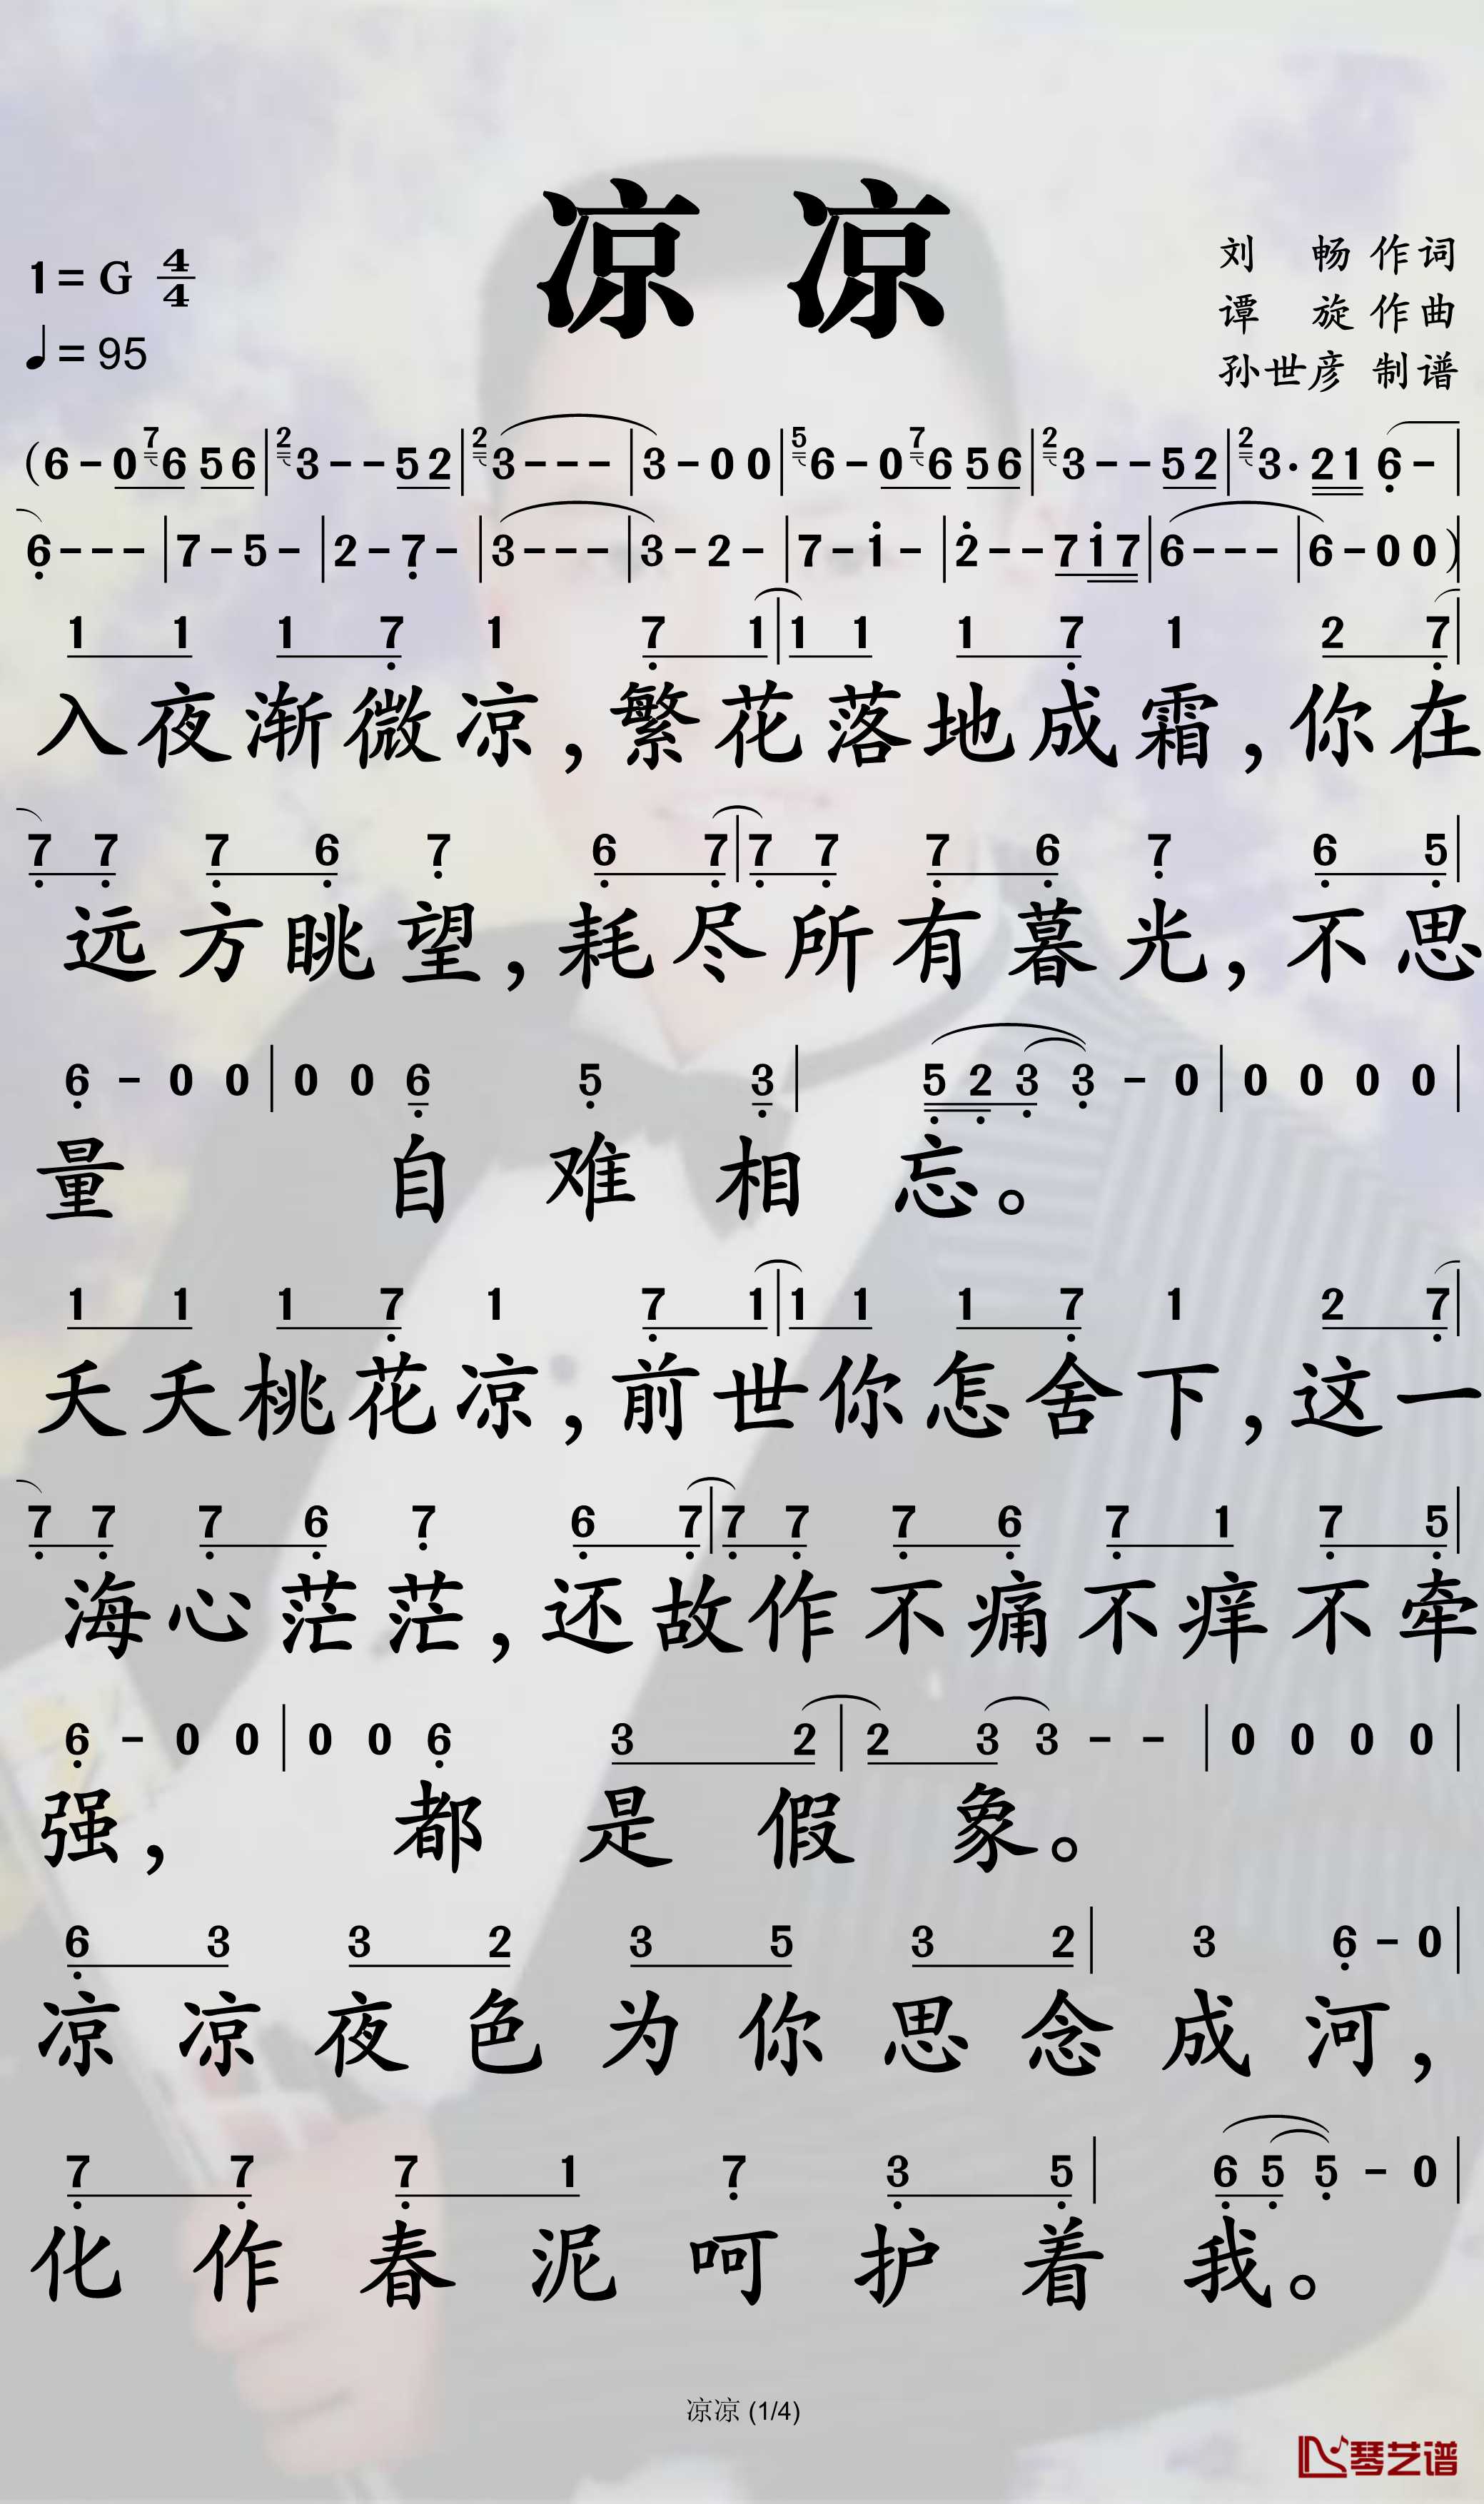 凉 凉
1=G 4/4
♩=95
刘 畅 作词
谭 旋 作曲
孙世彦 制谱
(6-0 7 6 5 6|2 3--5 2|2 3---|3-0 0|5 6-0 7 6 5 6|2 3--5 2|2 3·2 1 6̣-|
6̣---|7-5-|2-7̣-|3---|3-2-|7-1̇-|2̇--7 1̇ 7|6---|6-0 0)|
1 1 1 7̣ 1 7̣ 1|1 1 1 7̣ 1 2 7̣|
入夜渐微凉,繁花落地成霜,你在
7̣ 7̣ 7̣ 6̣ 7̣ 6̣ 7̣|7̣ 7̣ 7̣ 6̣ 7̣ 6̣ 5̣|
远方眺望,耗尽所有暮光,不思
6̣ - 0 0|0 0 6̣ 5̣ 3̣|5̣ 2̣ 3̣ 3̣ - 0|0 0 0 0|
量 自 难 相 忘。
1 1 1 7̣ 1 7̣ 1|1 1 1 7̣ 1 2 7̣|
夭夭桃花凉,前世你怎舍下,这一
7̣ 7̣ 7̣ 6̣ 7̣ 6̣ 7̣|7̣ 7̣ 7̣ 6̣ 7̣ 1 7̣ 5̣|
海心茫茫,还故作不痛不痒不牵
6̣ - 0 0|0 0 6̣ 3 2|2 3 3 - -|0 0 0 0|
强, 都 是 假 象。
6̣ 3 3 2 3 5 3 2|3 6̣ - 0|
凉凉夜色为你思念成河,
7̣ 7̣ 7̣ 1 7̣ 3̣ 5̣|6̣ 5̣ 5̣ - 0|
化作春泥呵护着我。
凉凉 (1/4)
琴艺谱